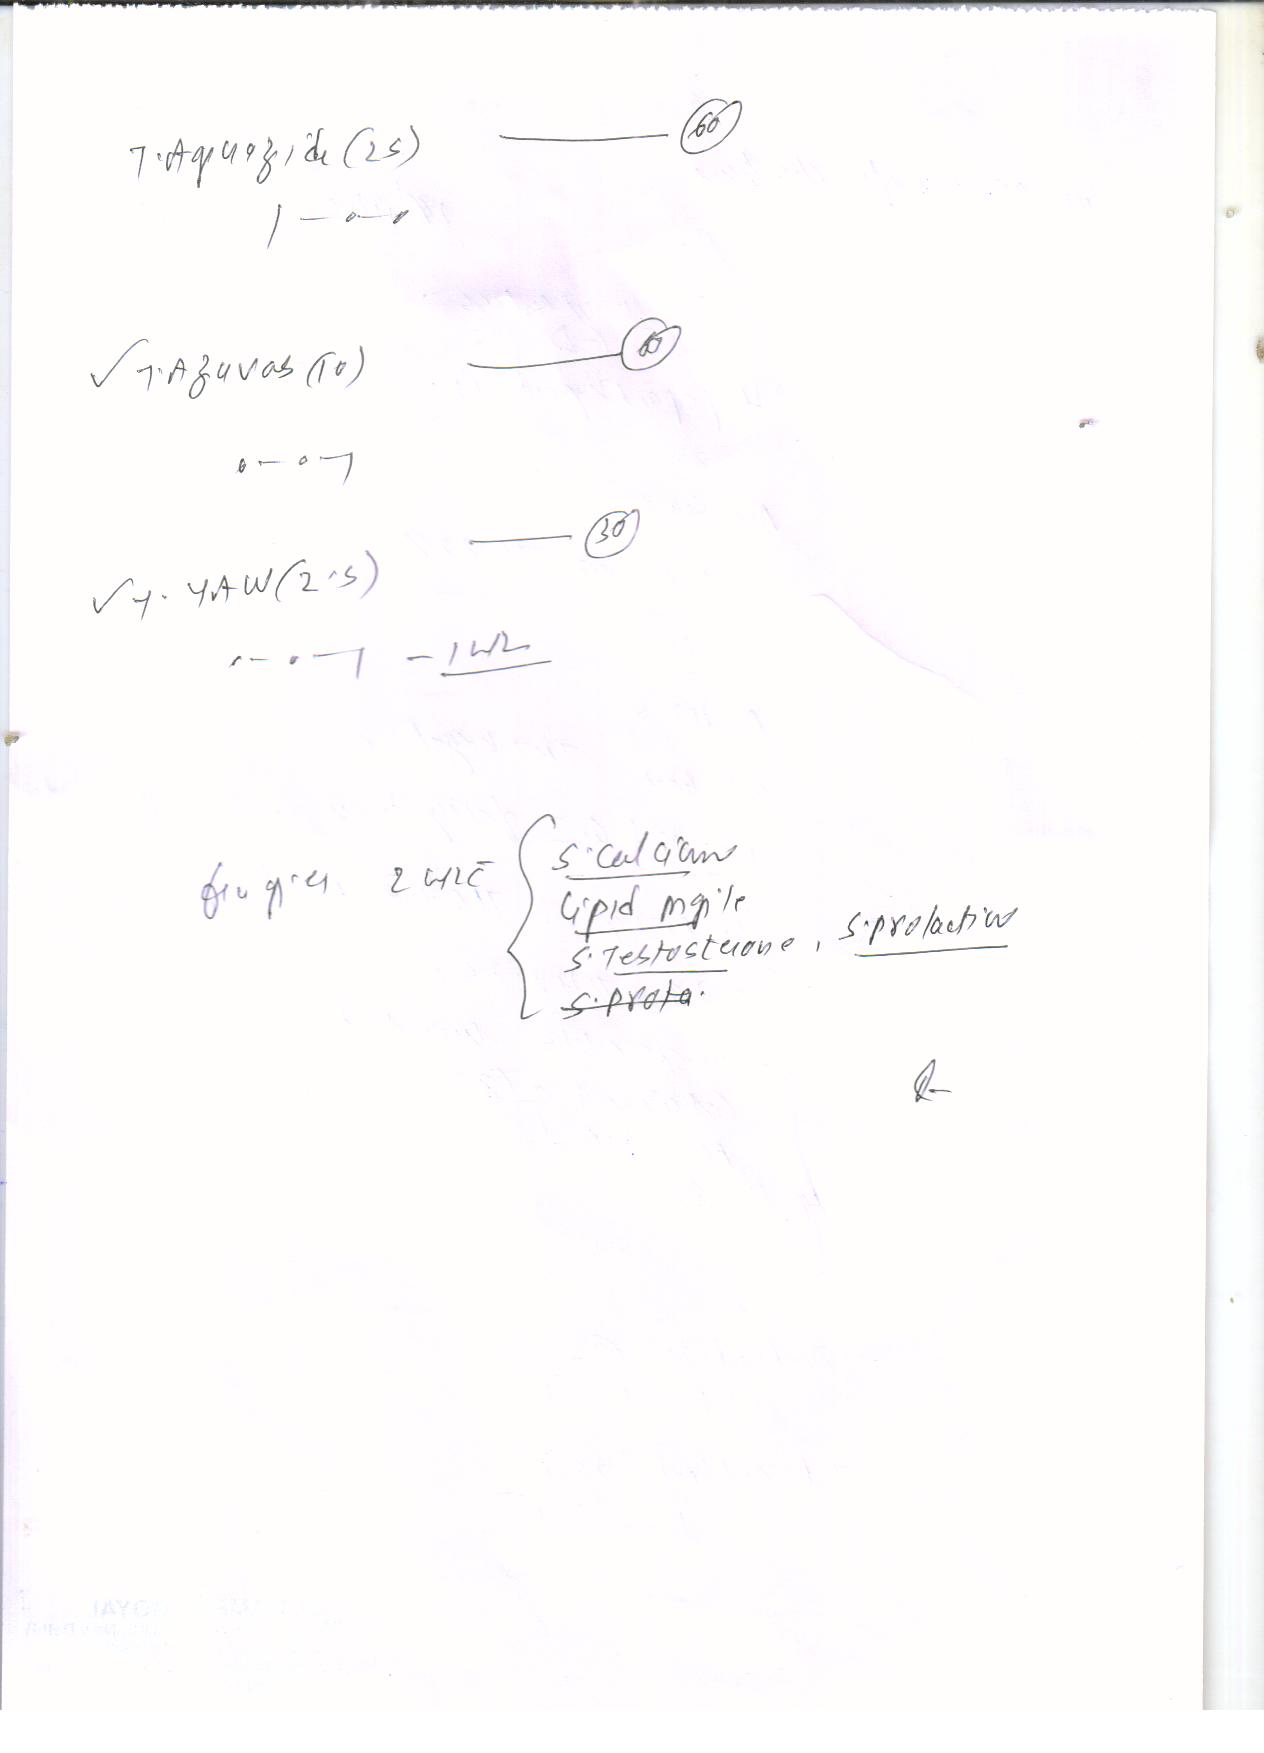 T. Aquazide (25) —— 60
1 – 0 – 0
✓ T. Azuvas (10) —— 60
0 – 0 – 1
—— 30
✓ T. YAW (2.5)
0 – 0 – 1 – 1 wk
2 wk c̄
S. calcium
Lipid profile
S. Testosterone, S. prolactin
S. prola.